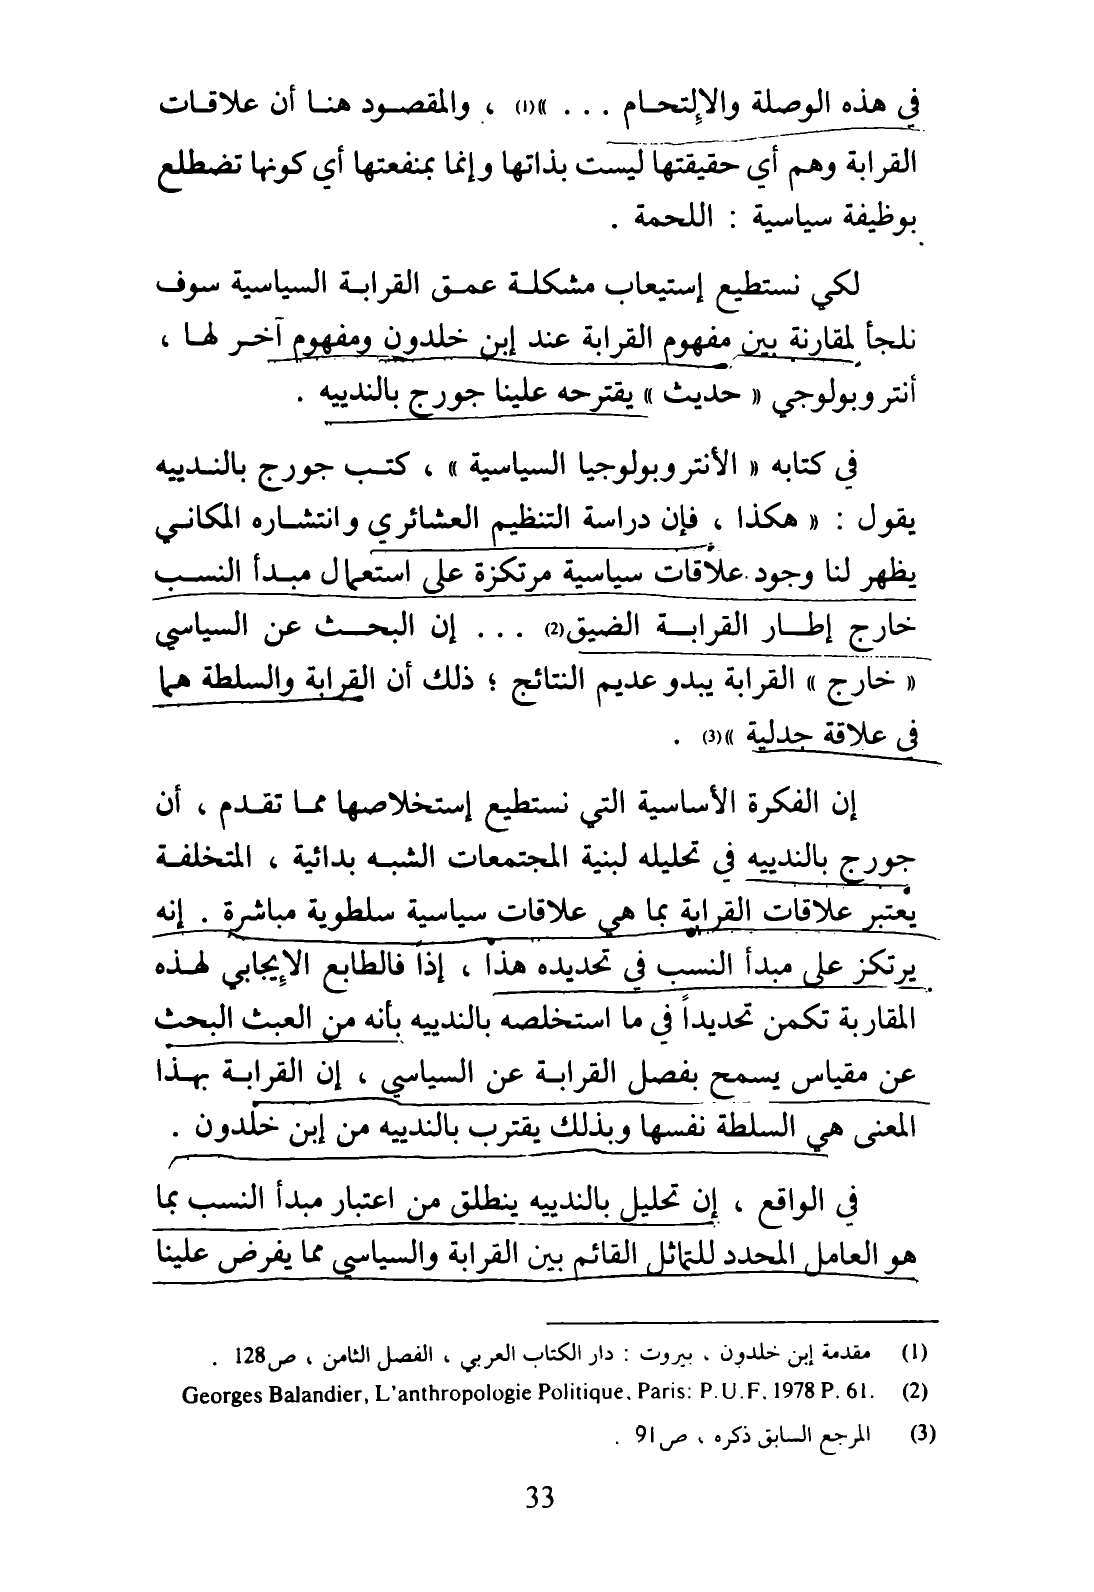 في هذه الوصلة والإلتحام . . . »(1) ، والمقصود هنا أن علاقات
القرابة وهم أي حقيقتها ليست بذاتها وإنما بمنفعتها أي كونها تضطلع
بوظيفة سياسية : اللحمة .
لكي نستطيع إستيعاب مشكلة عمق القرابة السياسية سوف
نلجأ لمقارنة بين مفهوم القرابة عند إبن خلدون ومفهوم آخر لها ،
أنتروبولوجي « حديث » يقترحه علينا جورج بالندييه .
في كتابه « الأنتروبولوجيا السياسية » ، كتب جورج بالندييه
يقول : « هكذا ، فإن دراسة التنظيم العشائري وانتشاره المكاني
يظهر لنا وجود علاقات سياسية مرتكزة على استعمال مبدأ النسب
خارج إطار القرابة الضيق(2) . . . إن البحث عن السياسي
« خارج » القرابة يبدو عديم النتائج ؛ ذلك أن القرابة والسلطة هما
في علاقة جدلية »(3) .
إن الفكرة الأساسية التي نستطيع إستخلاصها مما تقدم ، أن
جورج بالندييه في تحليله لبنية المجتمعات الشبه بدائية ، المتخلفة
يعتبر علاقات القرابة بما هي علاقات سياسية سلطوية مباشرة . إنه
يرتكز على مبدأ النسب في تحديده هذا ، إذاً فالطابع الإيجابي لهذه
المقاربة تكمن تحديداً في ما استخلصه بالندييه بأنه من العبث البحث
عن مقياس يسمح بفصل القرابة عن السياسي ، إن القرابة بهذا
المعنى هي السلطة نفسها وبذلك يقترب بالندييه من إبن خلدون .
في الواقع ، إن تحليل بالندييه ينطلق من اعتبار مبدأ النسب بما
هو العامل المحدد للتماثل القائم بين القرابة والسياسي مما يفرض علينا
(1) مقدمة إبن خلدون . بيروت : دار الكتاب العربي ، الفصل الثامن ، ص128 .
(2) Georges Balandier, L'anthropologie Politique. Paris: P.U.F. 1978 P. 61.
(3) المرجع السابق ذكره ، ص91 .
33